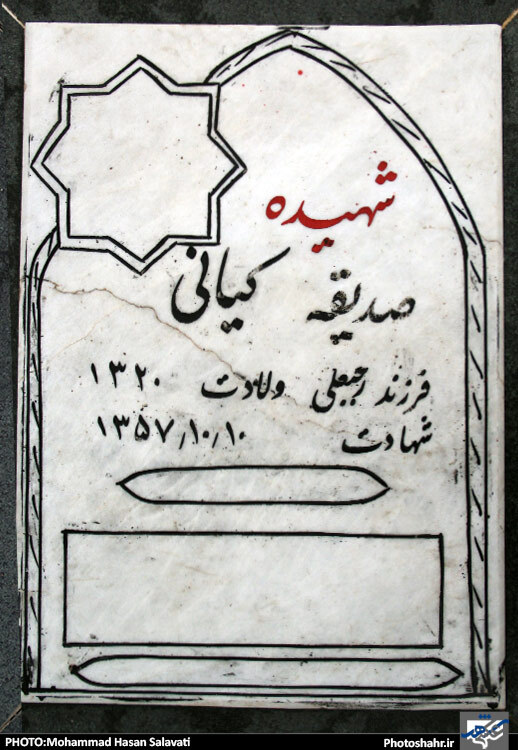 شهیده
صدیقه کیانی
فرزند رجبعلی ولادت ۱۳۲۰
شهادت ۱۳۵۷/۱۰/۱۰
PHOTO:Mohammad Hasan Salavati
Photoshahr.ir